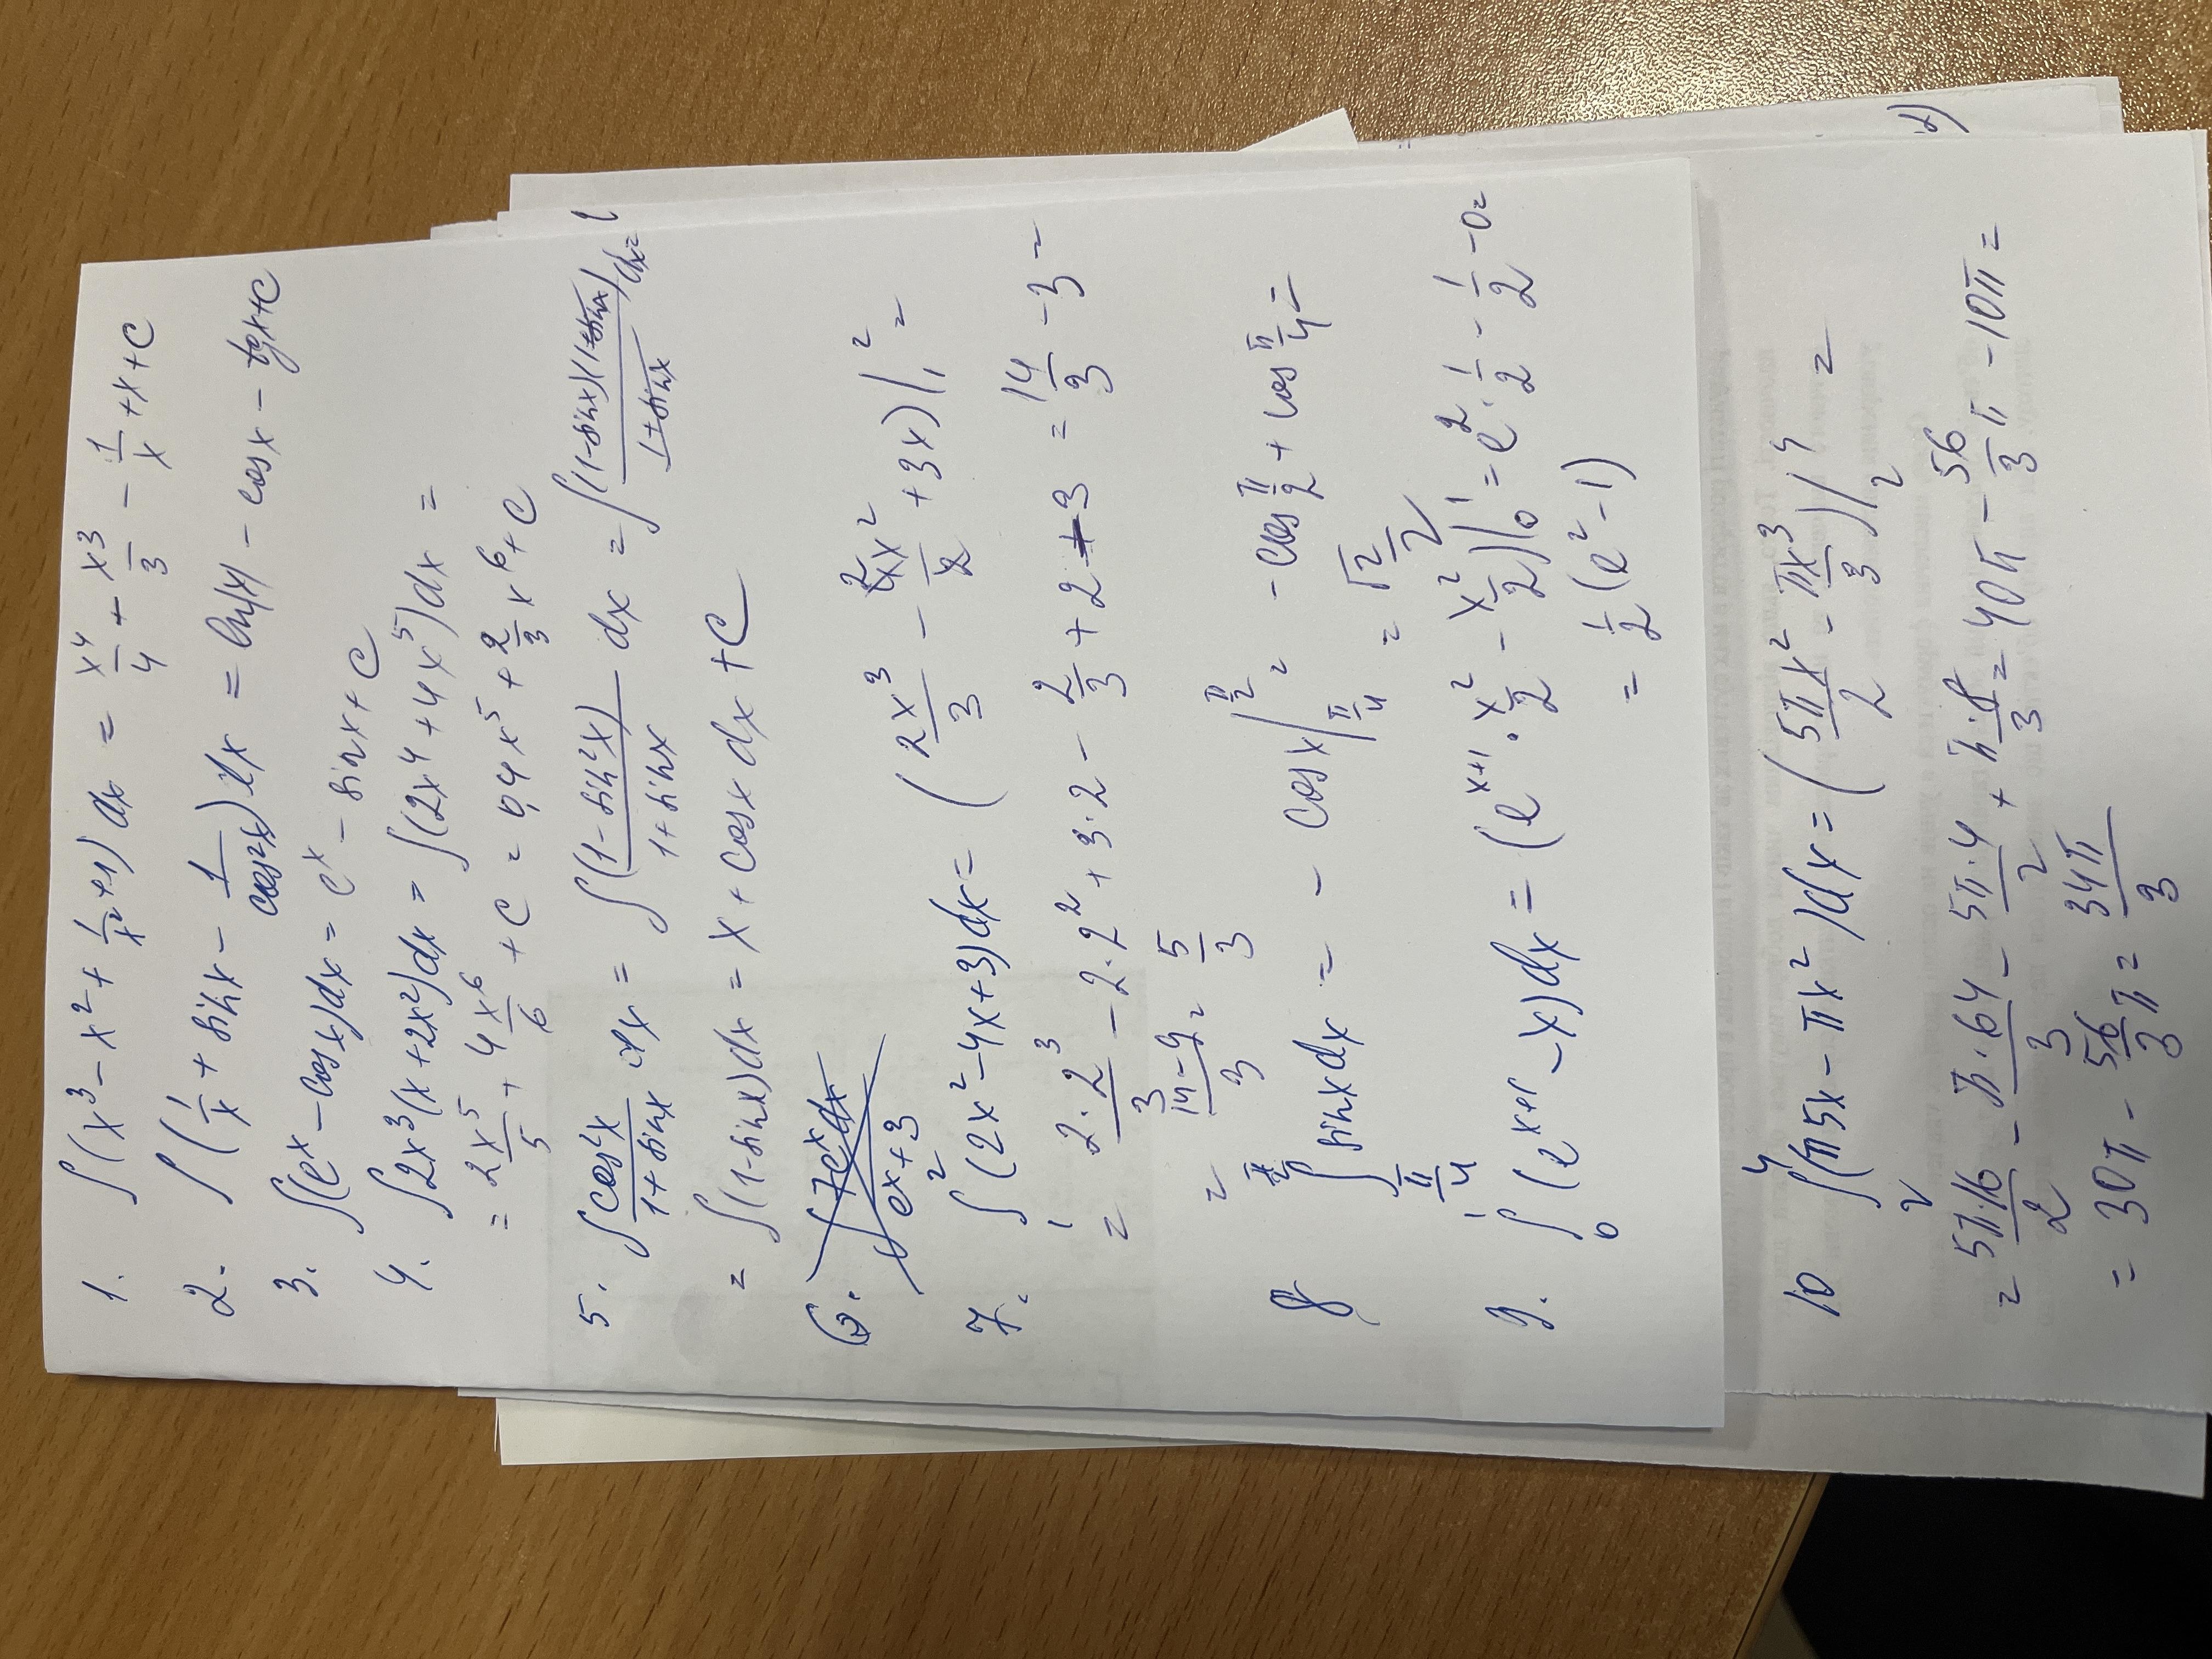 1. ∫(x³ - x² + 1/x² + 1) dx = x⁴/4 + x³/3 - 1/x + x + C
2. ∫(1/x + sinx - 1/cos²x) dx = ln|x| - cosx - tgx + C
3. ∫(eˣ - cosx) dx = eˣ - sinx + C
4. ∫2x³(x + 2x²) dx = ∫(2x⁴ + 4x⁵) dx =
= 2x⁵/5 + 4x⁶/6 + C = 0,4x⁵ + 2/3 x⁶ + C
5. ∫cos²x/(1+sinx) dx = ∫(1-sin²x)/(1+sinx) dx = ∫(1-sinx)(1+sinx)/(1+sinx) dx =
= ∫(1-sinx) dx = x + cosx dx + C
6. ∫7eˣdx/(eˣ+3)
7. ∫₁²(2x² - 4x + 3) dx = (2x³/3 - 4x²/2 + 3x)|₁² =
= 2·2³/3 - 2·2² + 3·2 - 2/3 + 2 - 3 = 14/3 - 3 =
= (14-9)/3 = 5/3
8 ∫ sinx dx = - cosx| = -cos π/2 + cos π/4 =
= √2/2
9. ∫₀¹(eˣ⁺¹ - x) dx = (eˣ⁺¹ · x²/2 - x²/2)|₀¹ = e² · 1/2 - 1/2 - 0 =
= 1/2 (e² - 1)
10 ∫₂⁴(π5x - πx²) dx = (5πx²/2 - πx³/3)|₂⁴ =
= 5π·16/2 - π·64/3 - 5π·4/2 + π·8/3 = 40π - 56/3 π - 10π =
= 30π - 56/3 π = 34π/3
x)